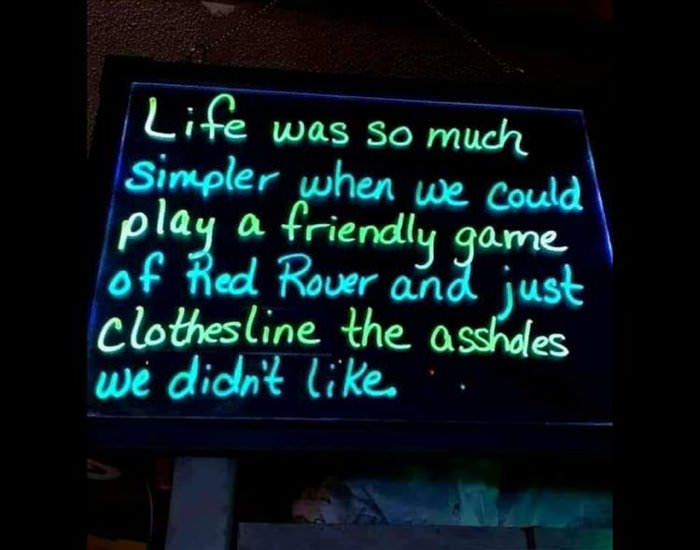 Life was so much
simpler when we could
play a friendly game
of Red Rover and just
clothesline the assholes
we didn't like.